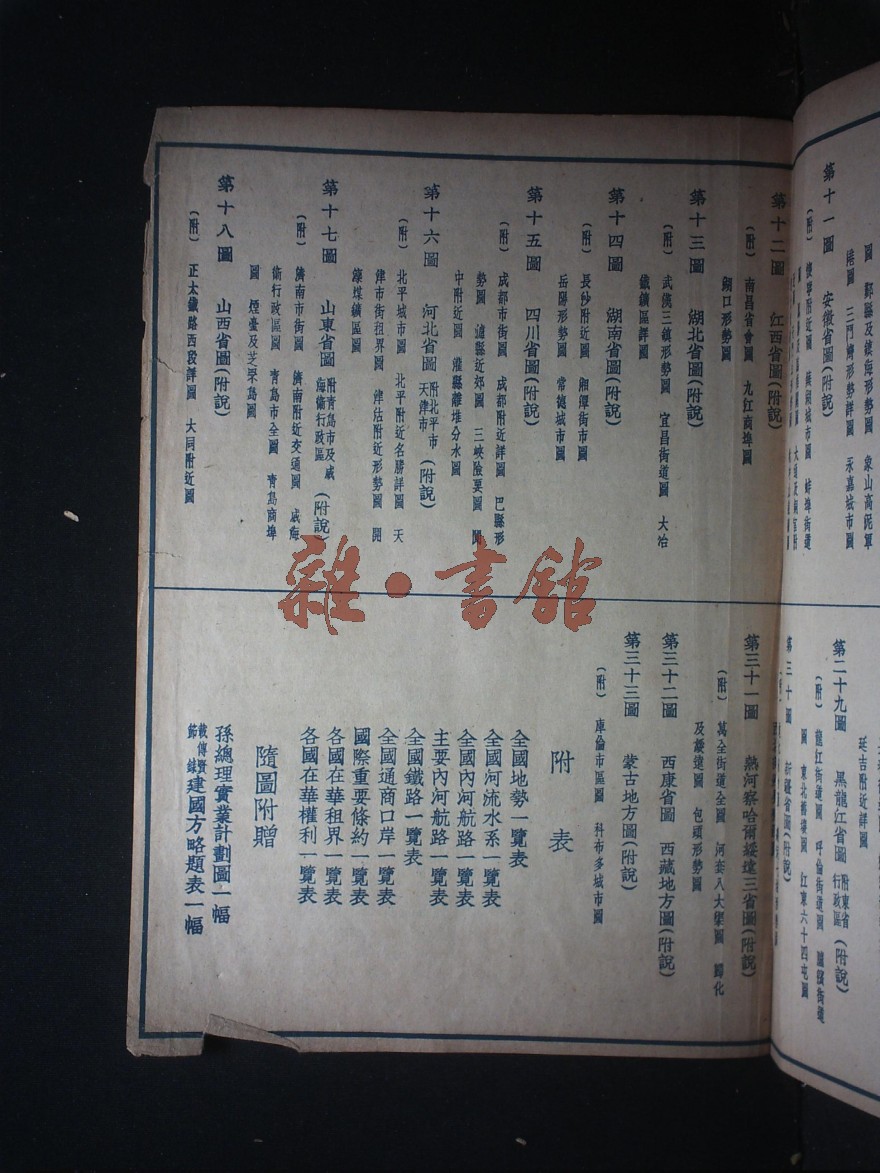 圖 鄞縣及鎮海形勢圖 象山高泥軍
港圖 三門灣形勢詳圖 永嘉城市圖
第十一圖 安徽省圖(附說)
第十二圖 江西省圖(附說)
(附) 南昌省會圖 九江商埠圖
湖口形勢圖
第十三圖 湖北省圖(附說)
(附) 武漢三鎮形勢圖 宜昌街道圖 大冶
鐵鑛區詳圖
第十四圖 湖南省圖(附說)
(附) 長沙附近圖 湘潭街市圖
岳陽形勢圖 常德城市圖
第十五圖 四川省圖(附說)
(附) 成都市街圖 成都附近詳圖 巴縣形
勢圖 瀘縣近郊圖 三峽險要圖 閬
中附近圖 灌縣離堆分水圖
第十六圖 河北省圖 附北平市天津市 (附說)
(附) 北平城市圖 北平附近名勝詳圖 天
津市街租界圖 津沽附近形勢圖 開
灤煤鑛圖
第十七圖 山東省圖 附青島市及威海衞行政區 (附說)
(附) 濟南市街圖 濟南附近交通圖 威海
衞行政區圖 青島市全圖 青島商埠
圖 煙臺及芝罘島圖
第十八圖 山西省圖(附說)
(附) 正太鐵路西段詳圖 大同附近圖
延吉附近詳圖
第二十九圖 黑龍江省圖 附東省行政區 (附說)
(附) 龍江街道圖 呼倫街道圖 臚濱街道
圖 東北形勢圖 江東六十四屯圖
第三十圖 新疆省圖(附說)
第三十一圖 熱河察哈爾綏遠三省圖(附說)
(附) 萬全街道全圖 河套八大渠圖 歸化
及綏遠圖 包頭形勢圖
第三十二圖 西康省圖 西藏地方圖(附說)
第三十三圖 蒙古地方圖(附說)
(附) 庫倫市區圖 科布多城市圖
附表
全國地勢一覽表
全國河流水系一覽表
全國內河航路一覽表
主要內河航路一覽表
全國鐵路一覽表
全國通商口岸一覽表
國際重要條約一覽表
各國在華租界一覽表
各國在華權利一覽表
隨圖附贈
孫總理實業計劃圖一幅
戴傳賢節錄建國方略題表一幅
雜·書館